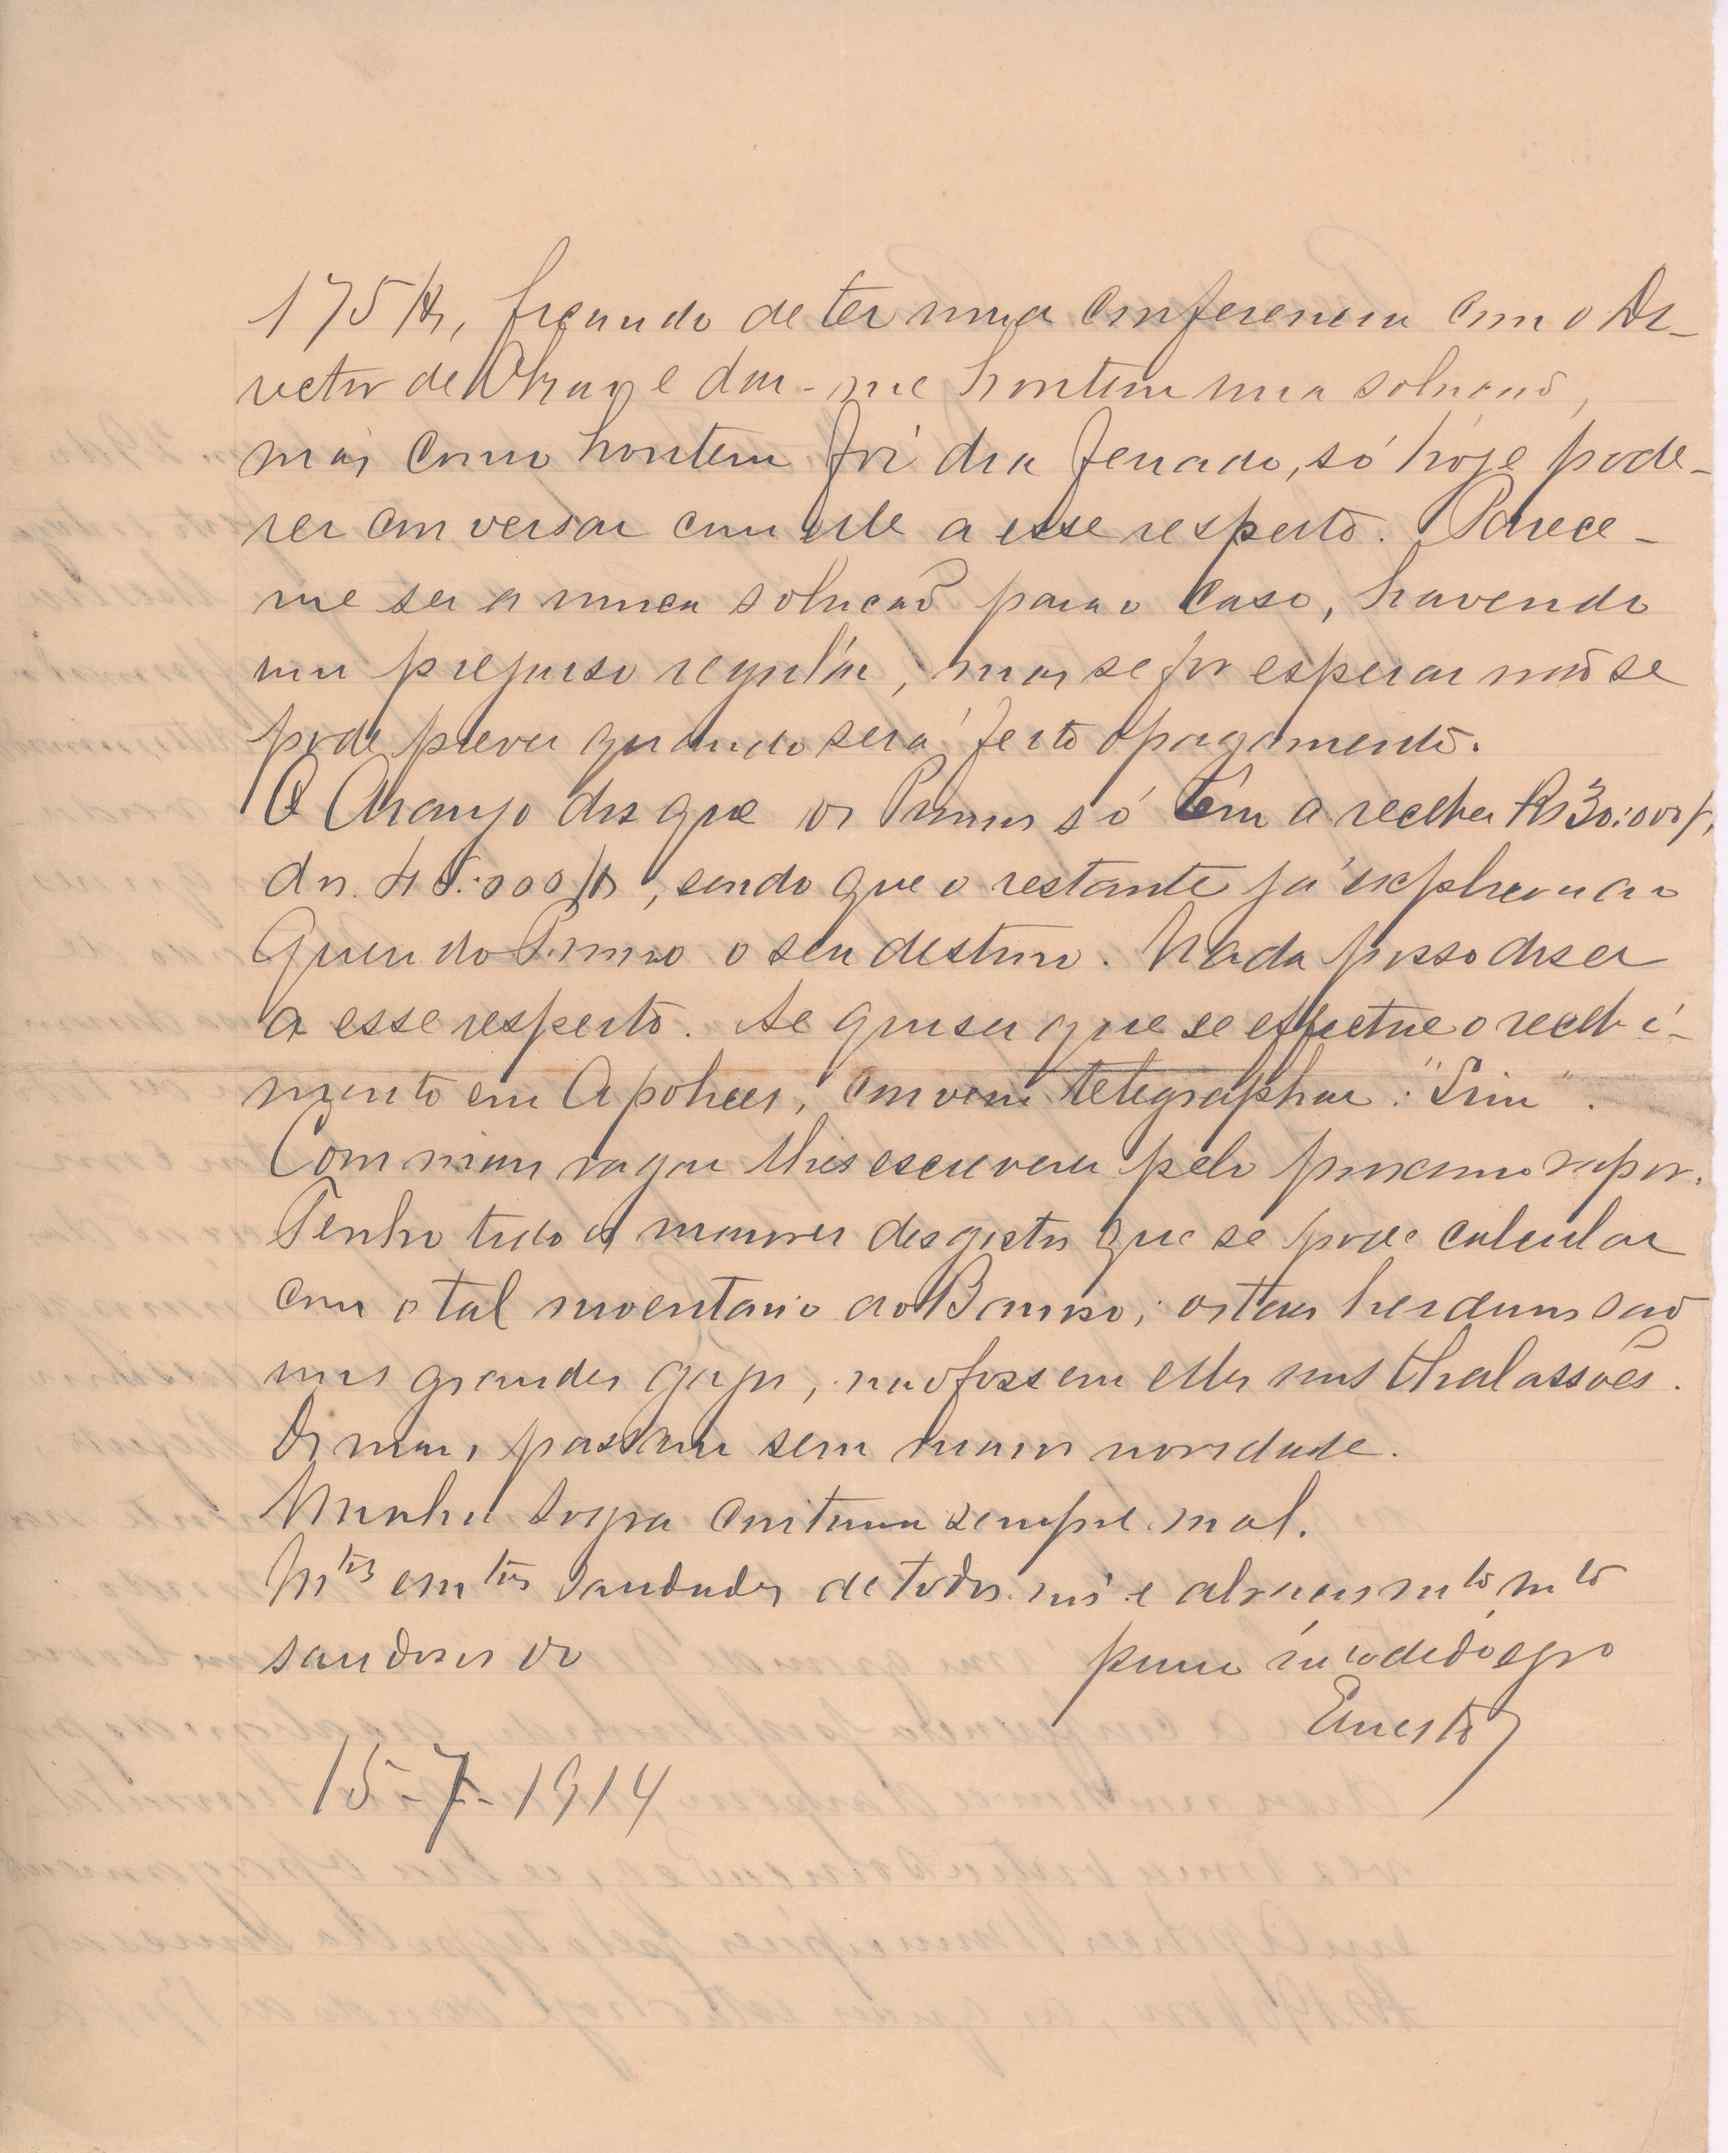 175$, ficando de ter uma conferencia com o Di-
rector de Obras e dar-me hontem uma solucaõ,
mas como hontem foi dia feriado, só hoje pode-
rei conversar com elle a esse respeito. Parece-
me ser a unica solucaõ para o caso, havendo
um prejuiso regular, mas se fôr esperar não se
pode prever quando será feito o pagamento.
O Araujo diz que os Primos só têm a receber Rs 30:000$,
dos 45:000$, sendo que o restante já explicou ao
Querido Primo o seu destino. Nada posso diser
a esse respeito. Se quiser que se effectue o recebi-
mento em Apolices, convem telegraphar: "Sim".
Com mais vagar lhes escreverei pelo proximo vapor.
Tenho tido os maiores desgostos que se pode calcular
com o tal inventario do Barroso; os taes herdeiros saõ
uns grandes gajos, não fossem elles uns thalassões.
Os mais passam sem maior novidade.
Minha Sogra continua sempre mal.
Mtas e mtas saudades de todos nós e abraços mto mto
saudosos do primo mto dedo e gro
Ernesto
15-7-1914